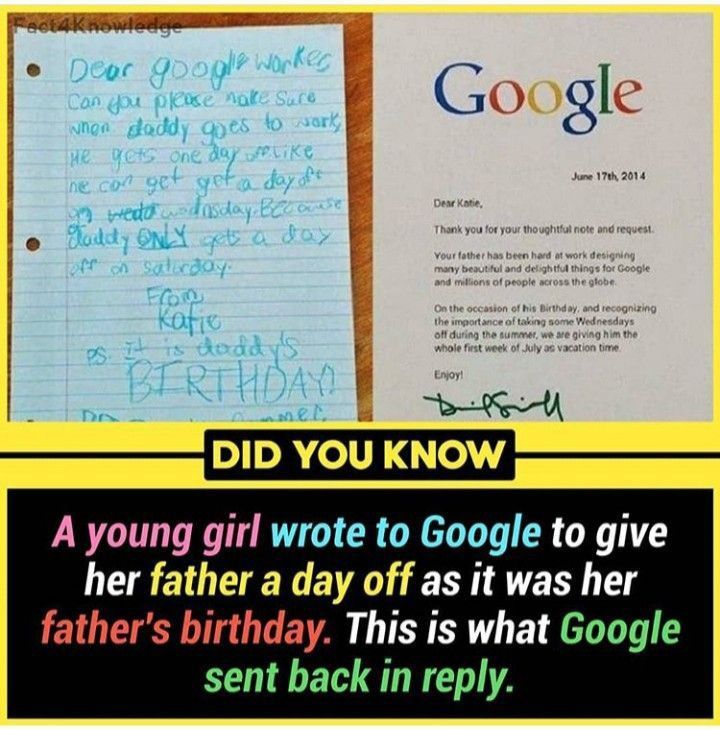 Fact4Knowledge
Dear google worker
Can you please make sure
when daddy goes to work
He gets one day off like
he can get get a day off
on wedo wednsday. Because
daddy ONLY gets a day
off on saturday.
From
Katie
PS. It is daddy's
BIRTHDAY!
Google
June 17th, 2014
Dear Katie,
Thank you for your thoughtful note and request.
Your father has been hard at work designing
many beautiful and delightful things for Google
and millions of people across the globe.
On the occasion of his Birthday, and recognizing
the importance of taking some Wednesdays
off during the summer, we are giving him the
whole first week of July as vacation time.
Enjoy!
DID YOU KNOW
A young girl wrote to Google to give
her father a day off as it was her
father's birthday. This is what Google
sent back in reply.